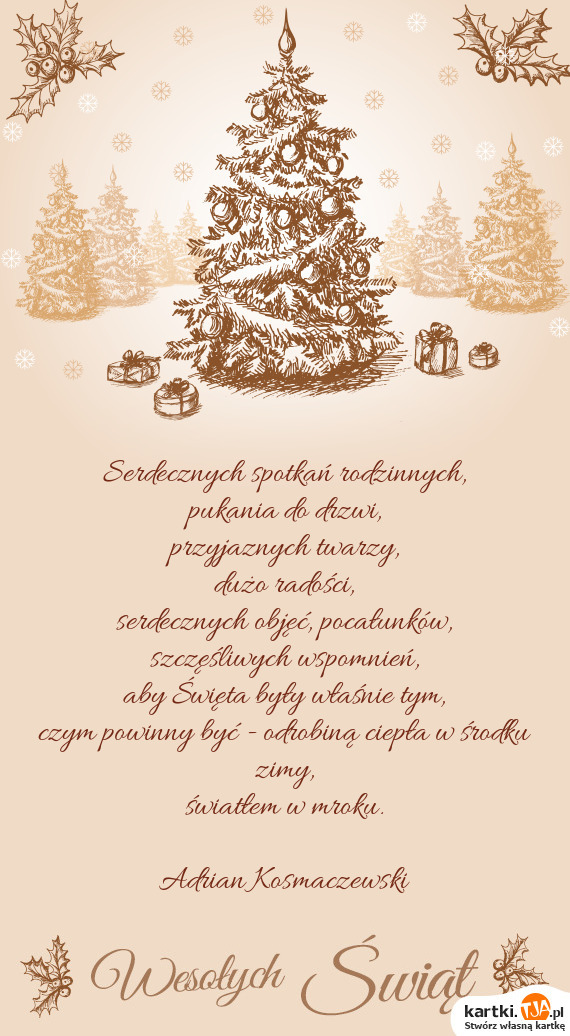 Serdecznych spotkań rodzinnych,
pukania do drzwi,
przyjaznych twarzy,
dużo radości,
serdecznych objęć, pocałunków,
szczęśliwych wspomnień,
aby Święta były właśnie tym,
czym powinny być - odrobiną ciepła w środku
zimy,
światłem w mroku.
Adrian Kosmaczewski
Wesołych Świąt
kartki.TJA.pl
Stwórz własną kartkę